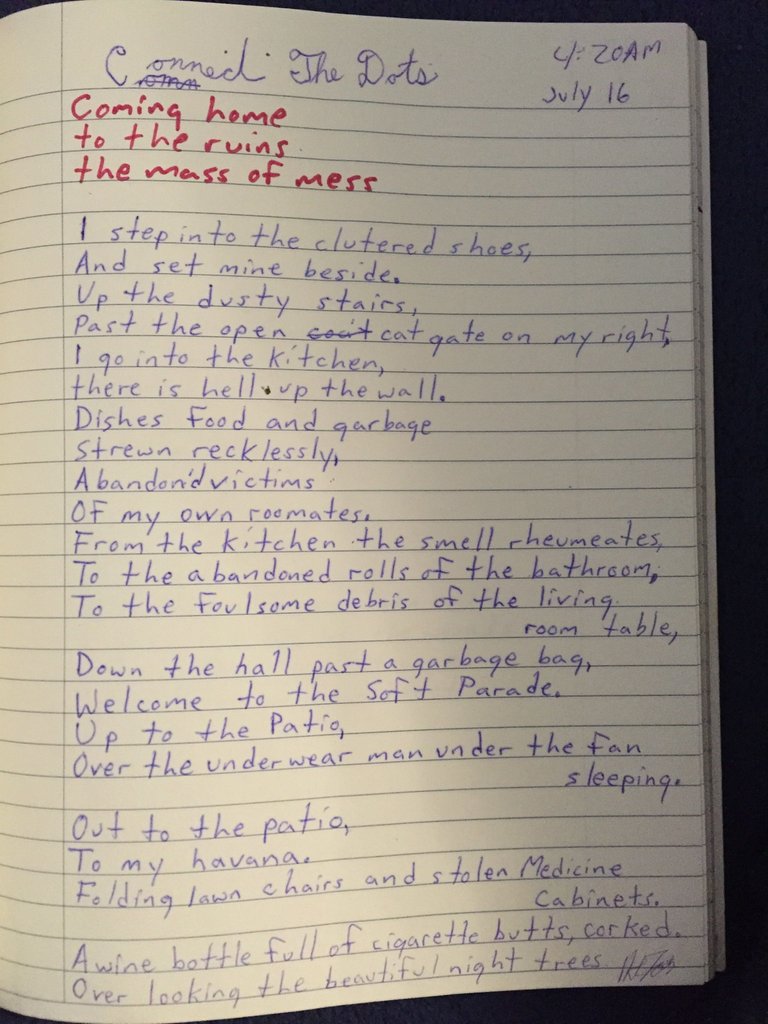 Connect The Dots
4:20AM
July 16
Coming home
to the ruins
the mass of mess
I step into the clutered shoes,
And set mine beside.
Up the dusty stairs,
Past the open cat gate on my right,
I go into the kitchen,
there is hell up the wall.
Dishes food and garbage
Strewn recklessly,
Abandon'd victims
Of my own roomates.
From the kitchen the smell rheumeates,
To the abandoned rolls of the bathroom,
To the foulsome debris of the living
room table,
Down the hall past a garbage bag,
Welcome to the Soft Parade.
Up to the Patio,
Over the underwear man under the fan
sleeping.
Out to the patio,
To my havana.
Folding lawn chairs and stolen Medicine
Cabinets.
A wine bottle full of cigarette butts, corked.
Over looking the beautiful night trees